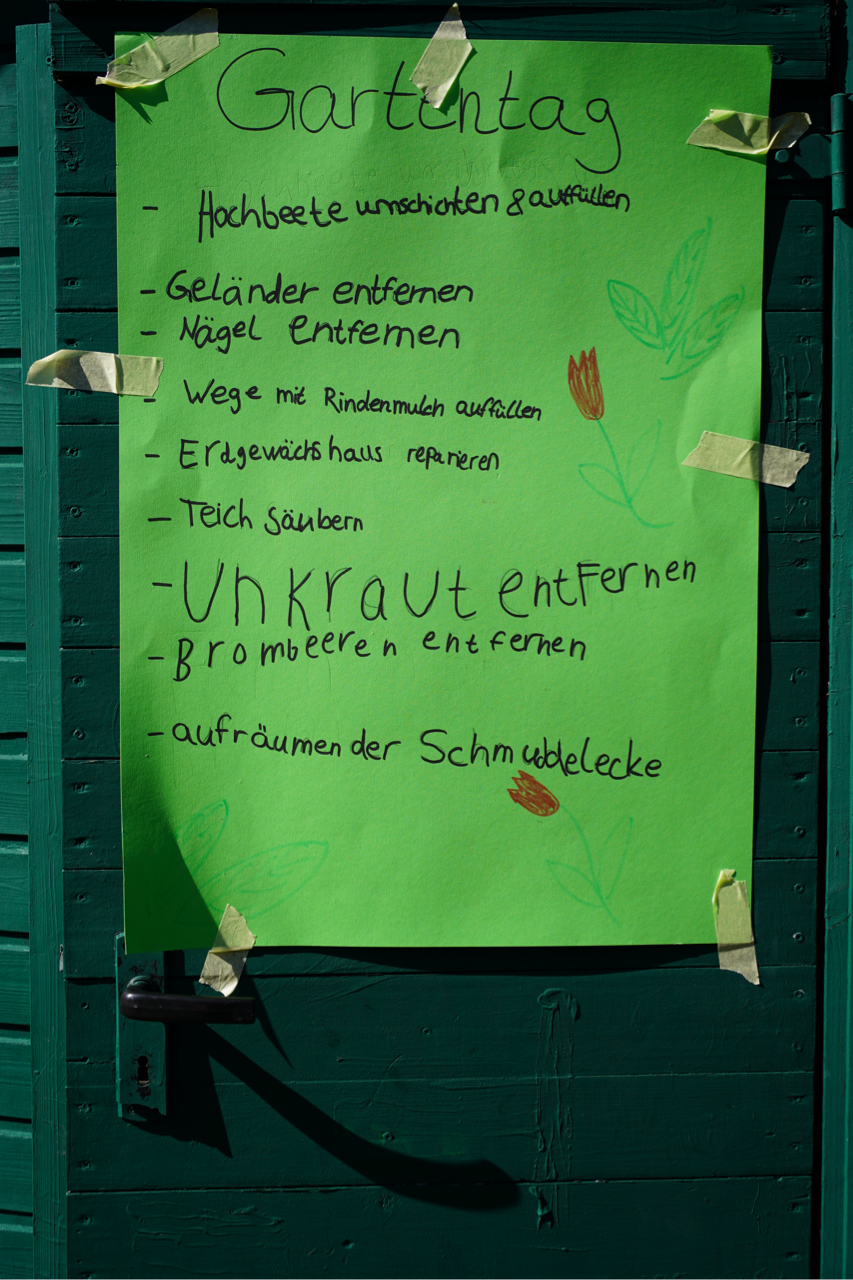 Gartentag
- Hochbeete umschichten & auffüllen
- Geländer entfernen
- Nägel entfernen
- Wege mit Rindenmulch auffüllen
- Erdgewächshaus reparieren
- Teich säubern
- Unkraut entfernen
- Brombeeren entfernen
- aufräumen der Schmuddelecke